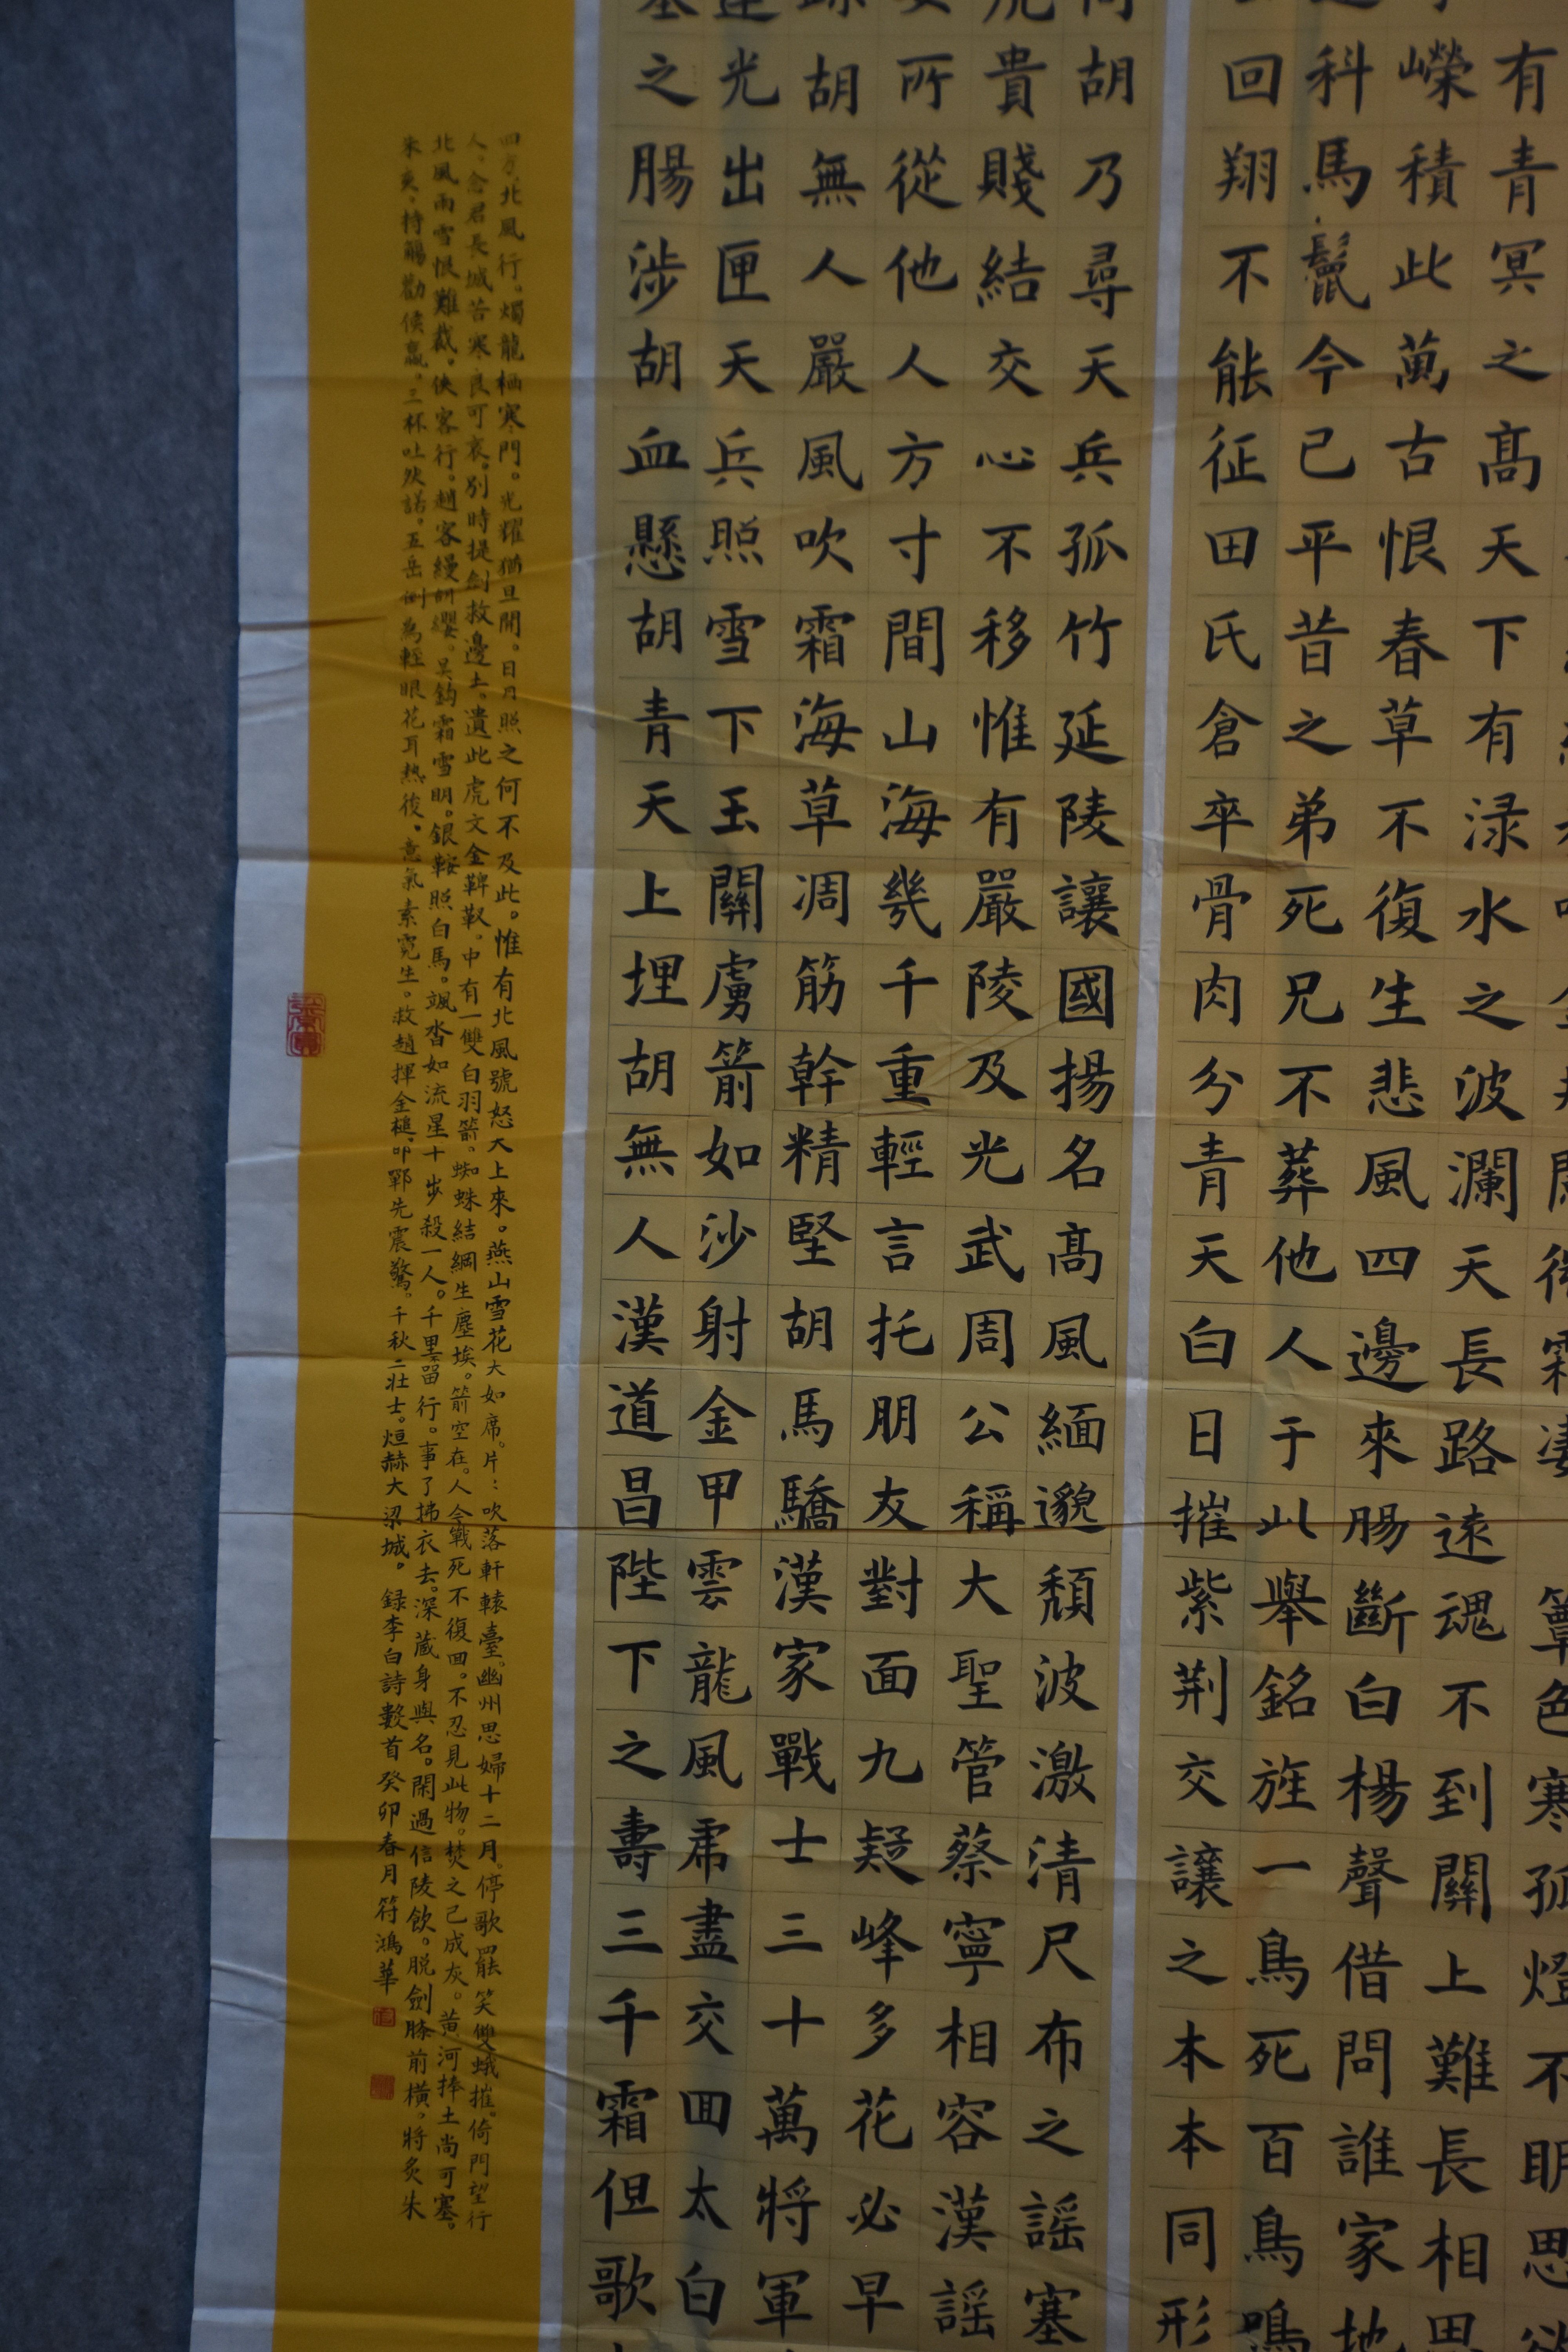 簟色寒孤燈不明思
有青冥之高天下有渌水之波瀾天長路遠魂不到關上難長相思
嶸積此萬古恨春草不復生悲風四邊來腸斷白楊聲借問誰家地
科馬鬛今已平昔之弟死兄不葬他人于此舉銘旌一鳥死百鳥鳴
回翔不能征田氏倉卒骨肉分青天白日摧紫荆交讓之本本同形
胡乃尋天兵孤竹延陵讓國揚名高風緬邈頹波激清尺布之謡塞
貴賤結交心不移惟有嚴陵及光武周公稱大聖管蔡寧相容漢謡
所從他人方寸間山海幾千重輕言托朋友對面九疑峰多花必早
胡無人嚴風吹霜海草凋筋幹精堅胡馬驕漢家戰士三十萬將軍
光出匣天兵照雪下玉關虜箭如沙射金甲雲龍風虎盡交回太白
之腸涉胡血懸胡青天上埋胡無人漢道昌陛下之壽三千霜但歌
四方。北風行。燭龍栖寒門。光耀猶旦開。日月照之何不及此。惟有北風號怒天上來。燕山雪花大如席。片：吹落軒轅臺。幽州思婦十二月。停歌罷笑雙蛾摧。倚門望行
人。念君長城苦寒良可哀。別時提劍救邊去。遺此虎文金鞞靫。中有一雙白羽箭。蜘蛛結網生塵埃。箭空在。人今戰死不復回。不忍見此物。焚之已成灰。黄河捧土尚可塞。
北風雨雪恨難裁。俠客行。趙客縵胡纓。吴鈎霜雪明。銀鞍照白馬。颯沓如流星十步殺一人。千里留行。事了拂衣去。深藏身與名。閑過信陵飲。脱劍膝前横。將炙朱
朱亥。持觴勸侯嬴。三杯吐然諾。五岳倒為輕眼花耳熱後。意氣素霓生。救趙揮金槌。邯鄲先震驚。千秋二壯士。烜赫大梁城。 録李白詩數首癸卯春月 符鴻華